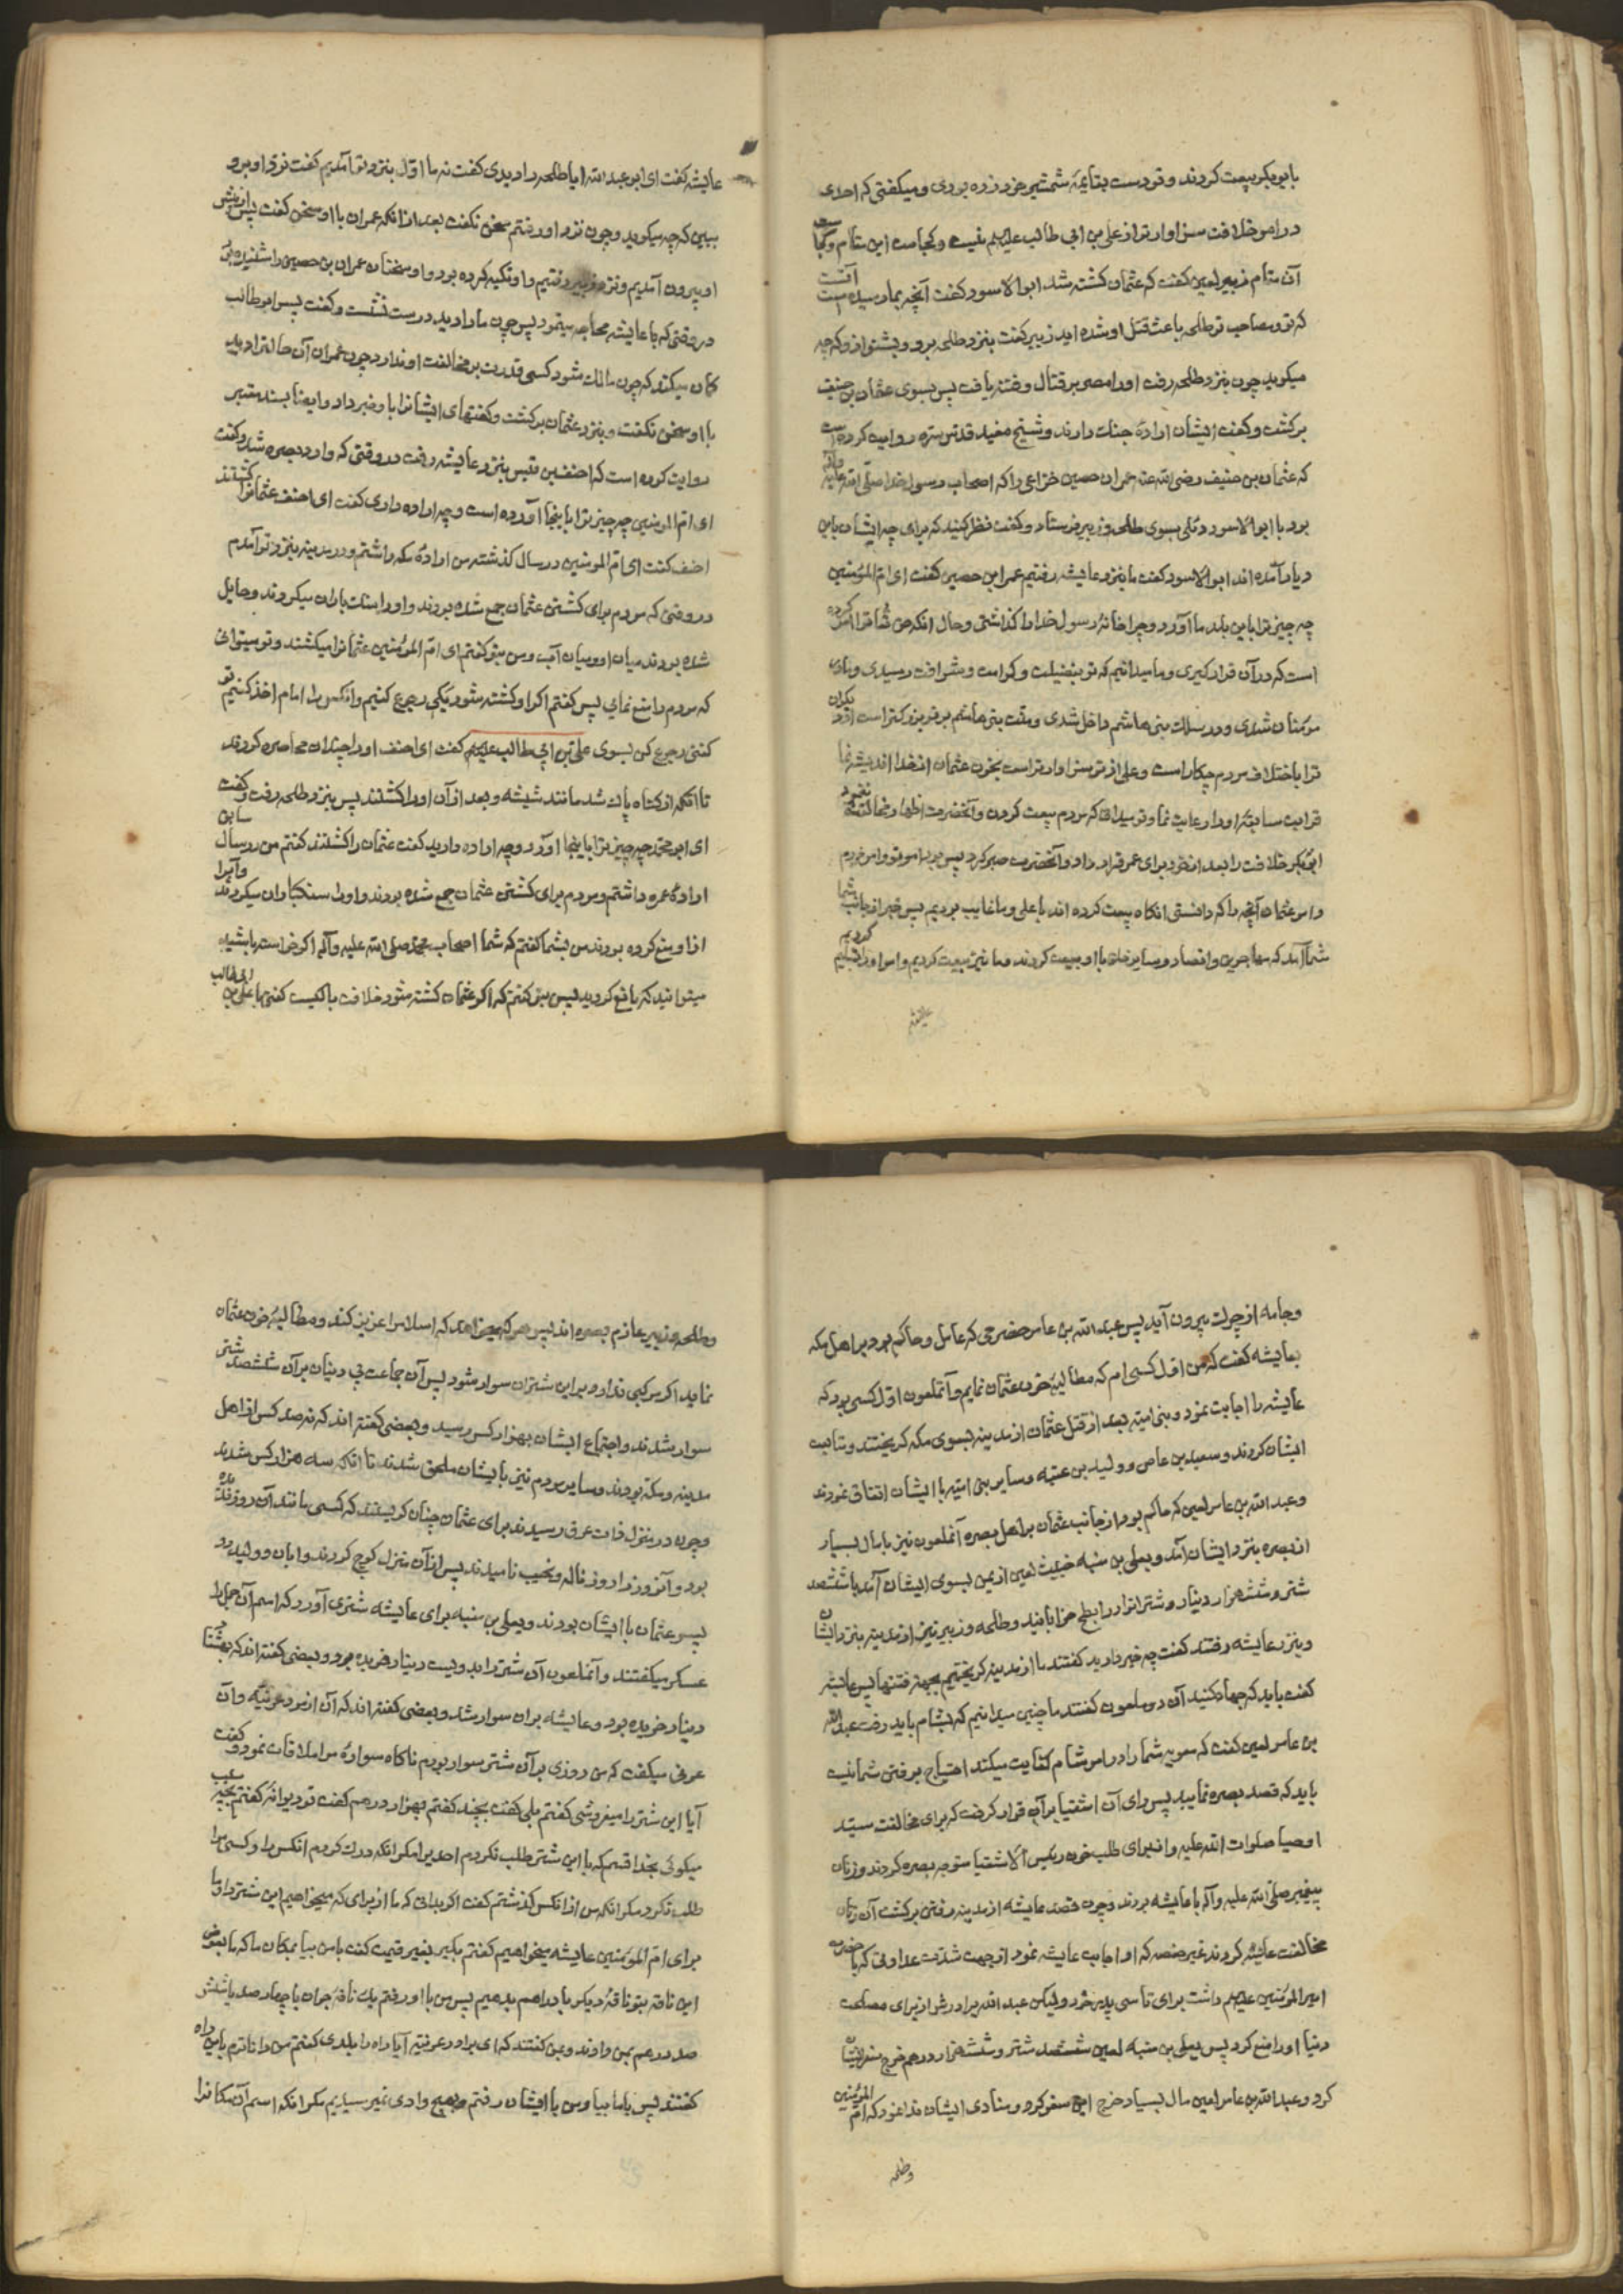 بابوبکر بیعت کردند و تو دست بقایمهٔ شمشیر خود زده بودی و میکفتی که احدی
در امر خلافت سزاوارتر از علی بن ابی طالب علیهم نیست و کجاست این مقام و کجاست
آن مقام زبیر لعین کفت که عثمان کشته شد ابوالاسود کفت آنچه بما رسیده است آنست
که تو و صاحب تو طلحه باعث قتل او شده اید زبیر کفت بنزد طلحه برو و بشنو از و که چه
میکوید چون بنزد طلحه رفت او را مصر بر قتال و فتنه یافت پس بسوی عثمان بن حنیف
برکشت و کفت ایشان ارادهٔ جنك دارند و شیخ مفید قدس سره روایت کرده است
که عثمان بن حنیف رضی الله عنه عمران حصین خزاعی را که اصحاب رسول خدا صلی الله علیه وآله
بود با ابوالاسود دئلی بسوی طلحه و زبیر فرستاد و کفت نظر کنید که برای چه ایشان باین
دیار آمده اند ابوالاسود کفت ما بنزد عایشه رفتیم عمران بن حصین کفت ای ام المؤمنین
چه چیز ترا باین بلد ما آورد و چرا خانهٔ رسول خدا را کذاشتی و حال انکه حق تعالی ترا امر کرده
است که در آن قرار کیری و ما میدانیم که تو بفضیلت و کرامت و شرافت رسیدی و مادر
مؤمنان شدی و در سلك بنی هاشم داخل شدی و منت بنی هاشم بر تو بزرکتر است از دیکران
ترا باختلاف مردم چکار است و علی از تو سزاوارتر است بخون عثمان از خدا اندیشه نما
قرابت سابقهٔ او را رعایت نما و تو میدانی که مردم بیعت کردن و آنحضرت اظهار مخالفت ننمود
ابوبکر خلافت را بعد از خود برای عمر قرار داد و آنحضرت صبر کرد پس
در امر عثمان آنچه را که دانستی انکاه بیعت کرده اند با علی و ما غایب بودیم پس خبر از جانب شما
شما آمد که مهاجرین و انصار و سایر خلق با او بیعت کردند و ما نیز بیعت کردیم و امر او را تسلیم کردیم
عایشه
عایشه کفت ای ابو عبد الله ایا طلحه را دیدی کفت نه ما اول بنزد تو آمدیم کفت نزد او برو
ببین که چه میکوید و چون نزد او رفتم سخن نکفت بعد از انکه عمران با او سخن کفت پس از پیش
او بیرون آمدیم و نزد زبیر رفتیم و او تکیه کرده بود و او سخنان عمران بن حصین را شنیده بود
در وقتی که با عایشه محاجه مینمود پس چون ما را دید درست نشست و کفت پسر ابو طالب
کمان میکند که چون مالك شود کسی قدرت بر مخالفت او ندارد چون عمران آن حالت را دید
با او سخن نکفت و بنزد عثمان برکشت و کفتهای ایشانرا باو خبر داد و ایضا بسند معتبر
روایت کرده است که احنف بن قیس بنزد عایشه رفت در وقتی که وارد بصره شد و کفت
ای ام المؤمنین چه چیز ترا باینجا آورده است و چه اراده داری کفت ای احنف عثمانرا کشتند
احنف کفت ای ام المومنین در سال کذشته من ارادهٔ مکه داشتم و در مدینه بنزد تو آمدم
در وقتی که مردم برای کشتن عثمان جمع شده بودند و او را سنك باران میکردند و حایل
شده بودند میان او و میان آب و من بتو کفتم ای ام المؤمنین عثمانرا میکشند و تو میتوانی
که مردم را منع نمایی پس کفتم اکر او کشته شود بکی رجوع کنیم و از کس مرا امام اخذ کنیم تو
کفتی رجوع کن بسوی علی بن ابی طالب علیهم کفت ای احنف او را چندان محاصره کردند
تا انکه از کناه پاك شد مانند شیشه و بعد از آن او را کشتند پس بنزد طلحه رفت و کفت
ای ابو محمد چه چیز ترا باینجا آورد و چه اراده دارید کفت عثمان را کشتند کفتم من در سال سابق
ارادهٔ عمره داشتم و مردم برای کشتن عثمان جمع شده بودند و او را سنکباران میکردند و آب را
از او منع کرده بودند من بشما کفتم که شما اصحاب محمد صلی الله علیه وآله اکر خواسته باشید
میتوانید که مانع کردید پس بتو کفتم که اکر عثمان کشته شود خلافت با کیست کفتی با علی بن ابی طالب
و جامه از چرك بیرون آید پس عبد الله بن عامر حضرمی که عامل و حاکم بود بر اهل مکه
بعایشه کفت که من اول کسی ام که مطالبهٔ خون عثمان نمایم و آنملعون اول کسی بود که
عایشه را اجابت نمود و بنی امیه بعد از قتل عثمان از مدینه بسوی مکه کریختند و متابعت
ایشان کردند و سعید بن عاص و ولید بن عتبه و سایر بنی امیه با ایشان اتفاق نمودند
و عبد الله بن عامر لعین که حاکم بود از جانب عثمان بر اهل بصره آنملعون نیز با مال بسیار
از بصره بنزد ایشان آمد و یعلی بن منبه خبیث لعین از یمن بسوی ایشان آمد با ششصد
شتر و ششهزار دینار و شتران را در ابطح خوابانید و طلحه و زبیر نیز از مدینه بنزد ایشان
و بنزد عایشه رفتند کفت چه خبر دارید کفتند ما از مدینه کریختیم بجهة فتنها پس عایشه
کفت باید که جهاد کنید آن دو ملعون کفتند ما چنین میدانیم که بشام باید رفت عبد الله
بن عامر لعین کفت که معویه شما را در امر شام کفایت میکند احتیاج برفتن شما نیست
باید که قصد بصره نمایید پس رای آن اشقیا بر آن قرار کرفت که برای مخالفت سید
اوصیا صلوات الله علیه و از برای طلب خون رئیس الاشقیا متوجه بصره کردند و زنان
پیغمبر صلی الله علیه وآله با عایشه بودند و چون قصد عایشه از مدینه رفتن برکشت آن زنان
مخالفت عایشه کردند غیر حفصه که او اجابت عایشه نمود از جهت شدت عداوتی که با حضرت
امیر المؤمنین علیهم داشت برای تاسی پدر خود و لیکن عبد الله برادرش از برای مصلحت
دنیا او را منع کرد پس یعلی بن منبه لعین ششصد شتر و ششهزار درهم خرج سفر ایشان
کرد و عبد الله بن عامر لعین مال بسیار خرج این سفر کرد و منادی ایشان ندا نمود که ام المؤمنین
و طلحه
و طلحه و زبیر عازم بصره اند پس هر که میخواهد که اسلام را عزیز کند و مطالبهٔ خون عثمان
نماید اکر مرکبی ندارد بر این شتران سوار شود پس آن جماعت بی دینان بر آن ششصد شتر
سوار شدند و اجتماع ایشان بهزار کس رسید و بعضی کفته اند که نه صد کس از اهل
مدینه و مکه بودند و سایر مردم نیز با یشان ملحق شدند تا انکه سه هزار کس شدند
و چون در منزل ذات عرق رسیدند برای عثمان چنان کریستند که کسی مانند آن روز ندیده
بود و آنروز را روز ناله و نحیب نامیدند پس از آن منزل کوچ کردند و ابان و ولید دو
پسر عثمان با ایشان بودند و یعلی بن منبه برای عایشه شتری آورد که اسم آن جمل را
عسکر میکفتند و آنملعون آن شتر را بدویست دینار خریده بود و بعضی کفته اند که بهشتاد
دینار خریده بود و عایشه بران سوار شد و بعضی کفته اند که آن از مرد عرنیه و آن
عرنی میکفت که من روزی بر آن شتر سوار بودم ناکاه سوارهٔ مرا ملاقات نمود و کفت
آیا این شتر را میفروشی کفتم بلی کفت بچند کفتم بهزار درهم کفت تو دیوانهٔ کفتم بچه سبب
میکوئی بخدا قسم که با این شتر طلب نکردم احدیرا مکر انکه درك کردم انکس را و کسی مرا
طلب نکرد مکر انکه من از انکس کذشتم کفت اکر بدانی که ما از برای که میخواهیم این شتر را
برای ام المؤمنین عایشه میخواهیم کفتم بکیر بغیر قیمت کفت با من بیا بمکان ما که ما بعوض
این ناقه بتو ناقهٔ دیکر با دراهم بدهیم پس من با او رفتم یك ناقهٔ جوان با چهار صد یا شش
صد درهم بمن دادند و بمن کفتند که ای برادر عرنیه آیا راه را بلدی کفتم من داناترم باین راه
کفتند پس با ما بیا و من با ایشان رفتم و بهیچ وادی نمیرسیدیم مکر انکه اسم آن مکانرا